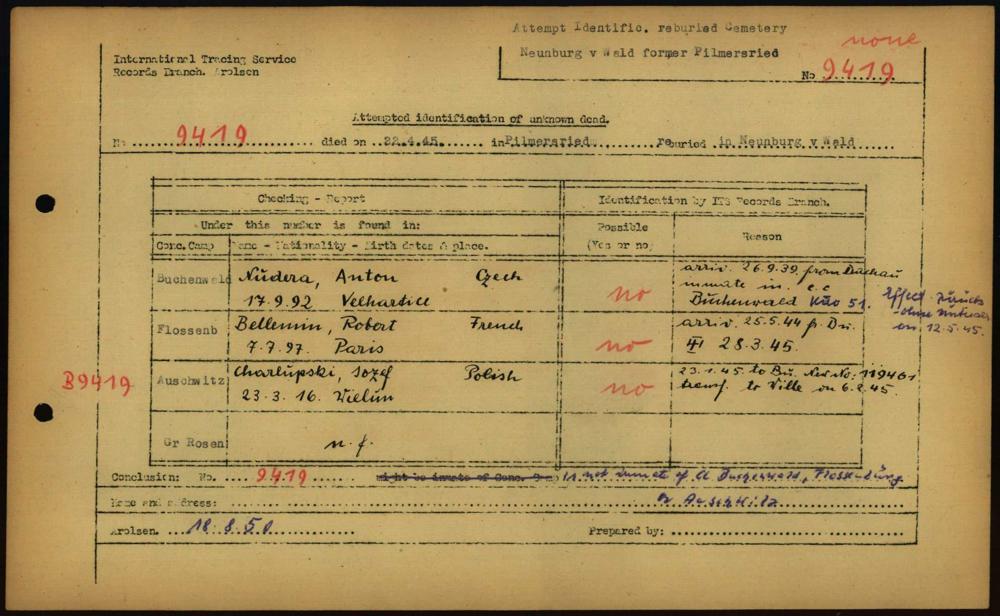 Attempt Identific. reburied Cemetery
Neunburg v Wald former Pilmersried
none
No 9419
International Tracing Service
Records Branch. Arolsen
Attempted identification of unknown dead.
No 9419 died on 22.4.45. in Pilmersried reburied in Neunburg v Wald
Checking - Report
Identification by ITS Records Branch.
Under this number is found in:
Possible
(Yes or no)
Reason
Conc. Camp
Name - Nationality - Birth dates & place.
Buchenwald Nudera, Anton Czech
17.9.92 Velhartice
no
arriv. 26.9.39 from Dachau
inmate in c.c
Buchenwald 51.
Effect.
on 12.5.45.
Flossenb Bellemin, Robert French
7.7.97. Paris
no
arriv. 25.5.44 fr. Bu.
28.3.45.
B9419
Auschwitz Charlupski, Jozef Polish
23.3.16. Wielun
no
23.1.45. to Bu. New No. 119461
transf. to Ville on 6.2.45.
Gr Rosen n.f.
Conclusion: No. 9419 might be inmate of Conc. Camp is not inmate of Cl Buchenwald, Flossenbürg
or Auschwitz
Name and address:
Arolsen. 18.8.50 Prepared by: